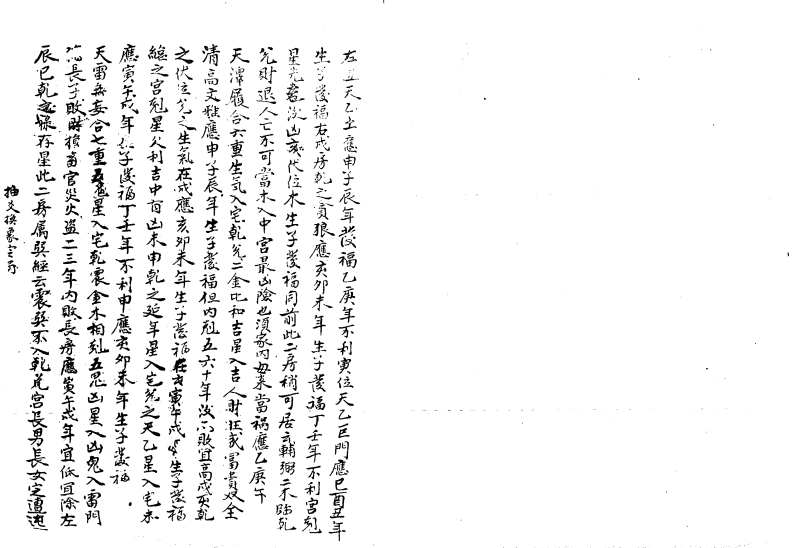 天乙土應申子辰年發福乙庚年不利寅位天乙巨門應巳酉丑年
生子發福右戌房乾之貪狼應亥卯未年生子發福丁壬年不利宮剋
星先若後凶亥伏位木生子發福同前此二房稍可居云輔弼二木臨乾
兌財退人亡不可當木入中宮最凶險也須家內母來當禍應乙庚午
天澤履合六重生氣入宅乾兌二金比和吉星入吉人財旺或富貴双全
清高文雅應申子辰年生子發福但內剋五六十年後六敗宜高成灰乾
之伏位兌之生氣在戌應亥卯未年生子發福在寅午戌生子發福
絕之宮剋星欠利吉中有凶未申乾之延年星入宅兌之天乙星入宅未
應寅午戌年生子發福丁壬年不利申應亥卯未年生子發福
天雷無妄合七重五鬼星入宅乾震金木相剋五鬼凶星入凶鬼入雷門
長子敗財換畜宮災火盜二三年內敗長房應寅午戌年宜低宜除左
辰巳乾之祿存星此二房屬巽經云震巽不入乾兌宮長男長女定遭迍
抽爻換象